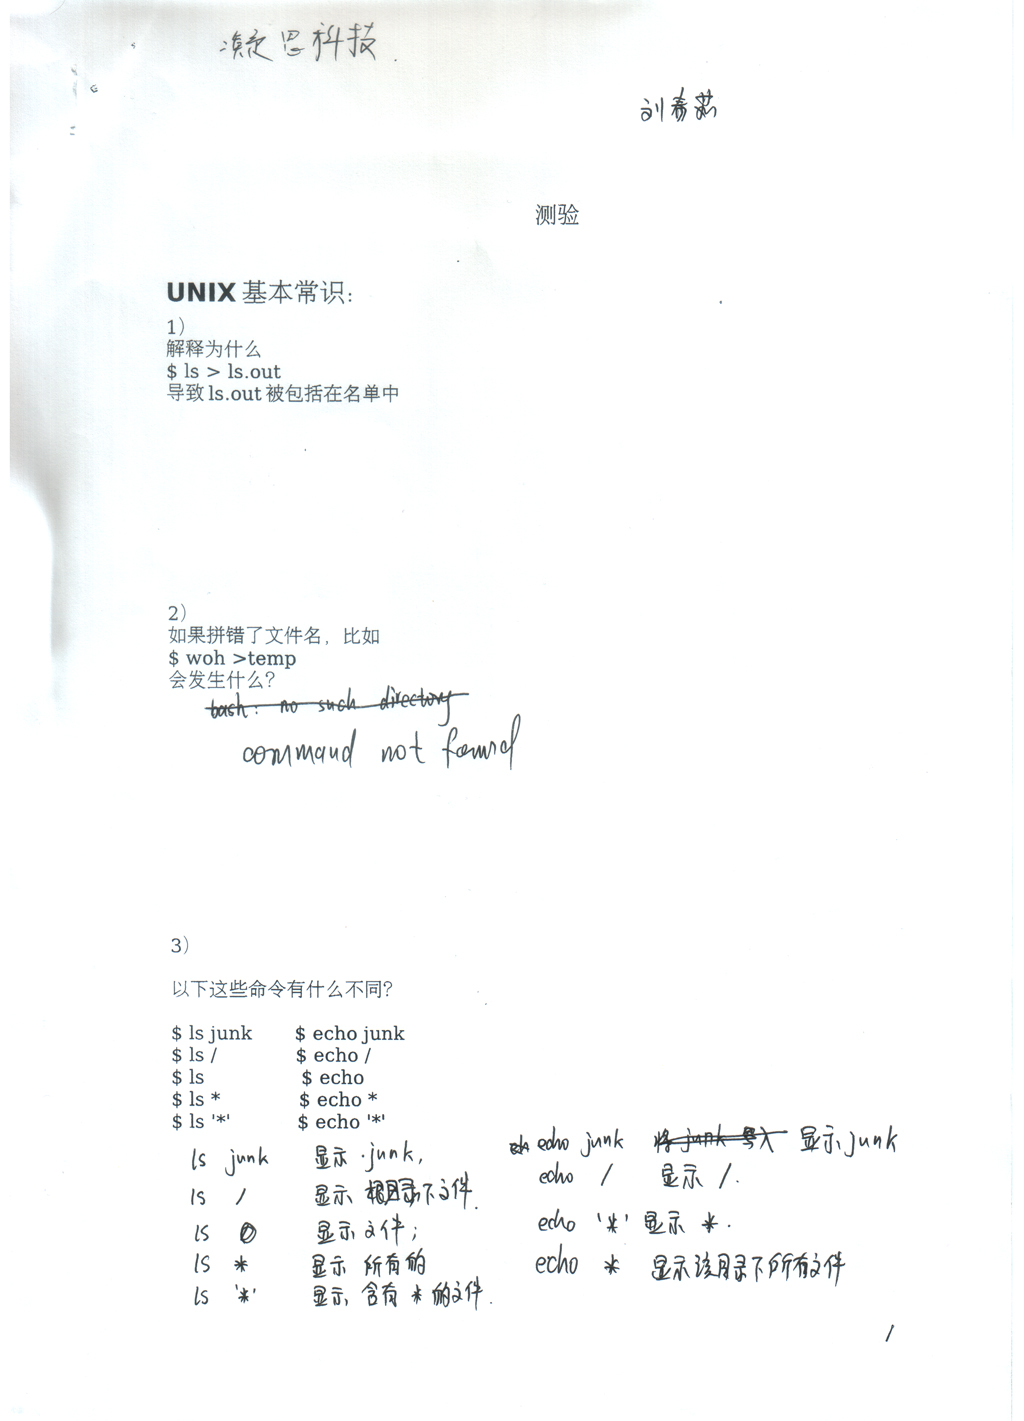 凝思科技.
刘希
测验
UNIX 基本常识:
1)
解释为什么
$ ls > ls.out
导致 ls.out 被包括在名单中
2)
如果拼错了文件名，比如
$ woh >temp
会发生什么?
bash: no such directory
command not found
3)
以下这些命令有什么不同?
$ ls junk $ echo junk
$ ls / $ echo /
$ ls $ echo
$ ls * $ echo *
$ ls '*' $ echo '*'
ls junk 显示 junk,
ls / 显示 根目录下文件.
ls 显示文件;
ls * 显示 所有的
ls '*' 显示 含有 * 的文件.
echo junk 将 junk 导入 显示 junk
echo / 显示 /.
echo '*' 显示 *.
echo * 显示该目录下所有文件
1